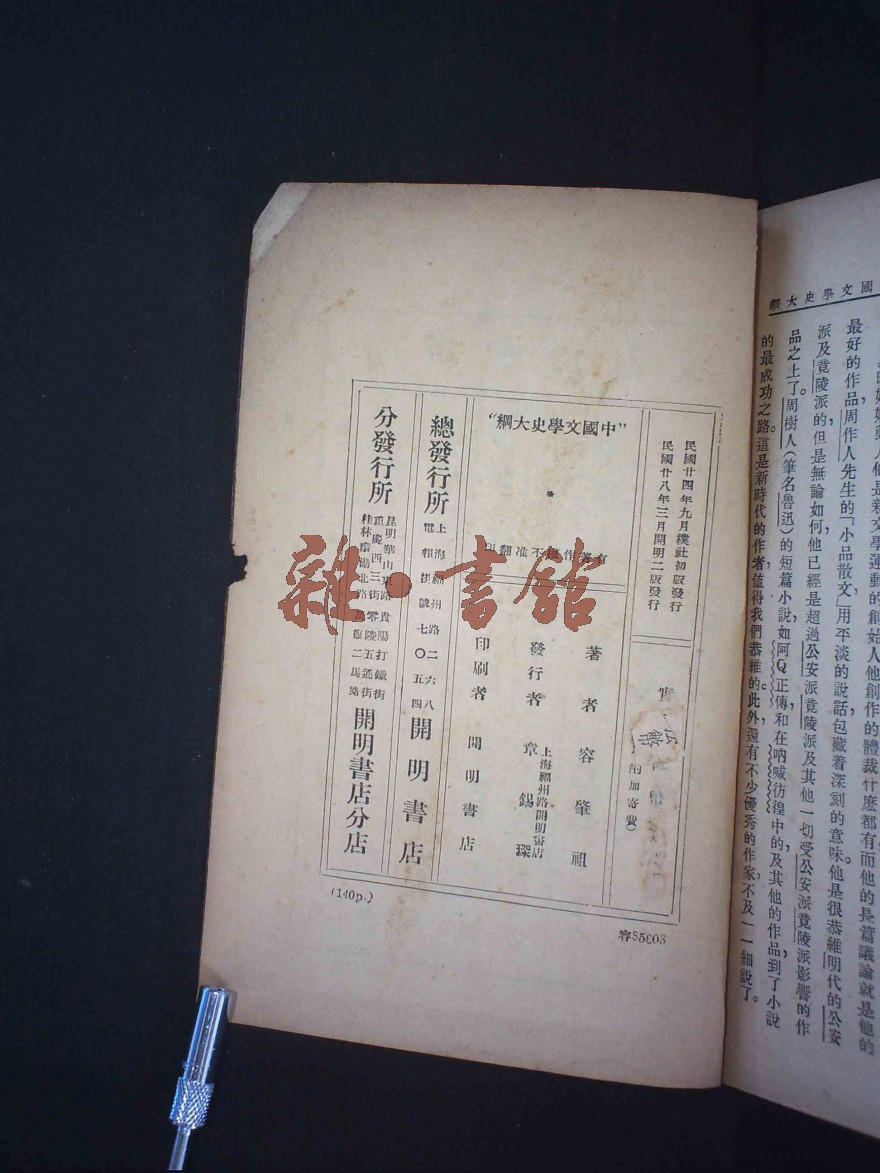 國文學史大綱
最好的作品，周作人先生的「小品散文」用平淡的說話包藏着深刻的意味。他是很恭維明代的公安
派及竟陵派的但是無論如何，他已經是超過公安派竟陵派及其他一切受公安派竟陵派影響的作
品之上了。周樹人（筆名魯迅）的短篇小說，如阿Q正傳，和在吶喊彷徨中的，及其他的作品，到了小說
的最成功之路。這是新時代的作者值得我們恭維的。此外，還有不少優秀的作家，不及一一細說了。
民國廿四年九月樸社初版發行
民國廿八年三月開明二版發行
（附加寄費）
"中國文學史大綱"
有著作權不准翻印
著者 容肇祖
發行者 章錫琛
上海福州路開明書店
印刷者 開明書店
總發行所
上海福州路二六八
電報掛號七〇五四
開明書店
分發行所
昆明華山東路 貴陽打鐵街
重慶西三街 零陵五通街
桂林環湖北路
二馬路
開明書店分店
(140p.)
雜·書館